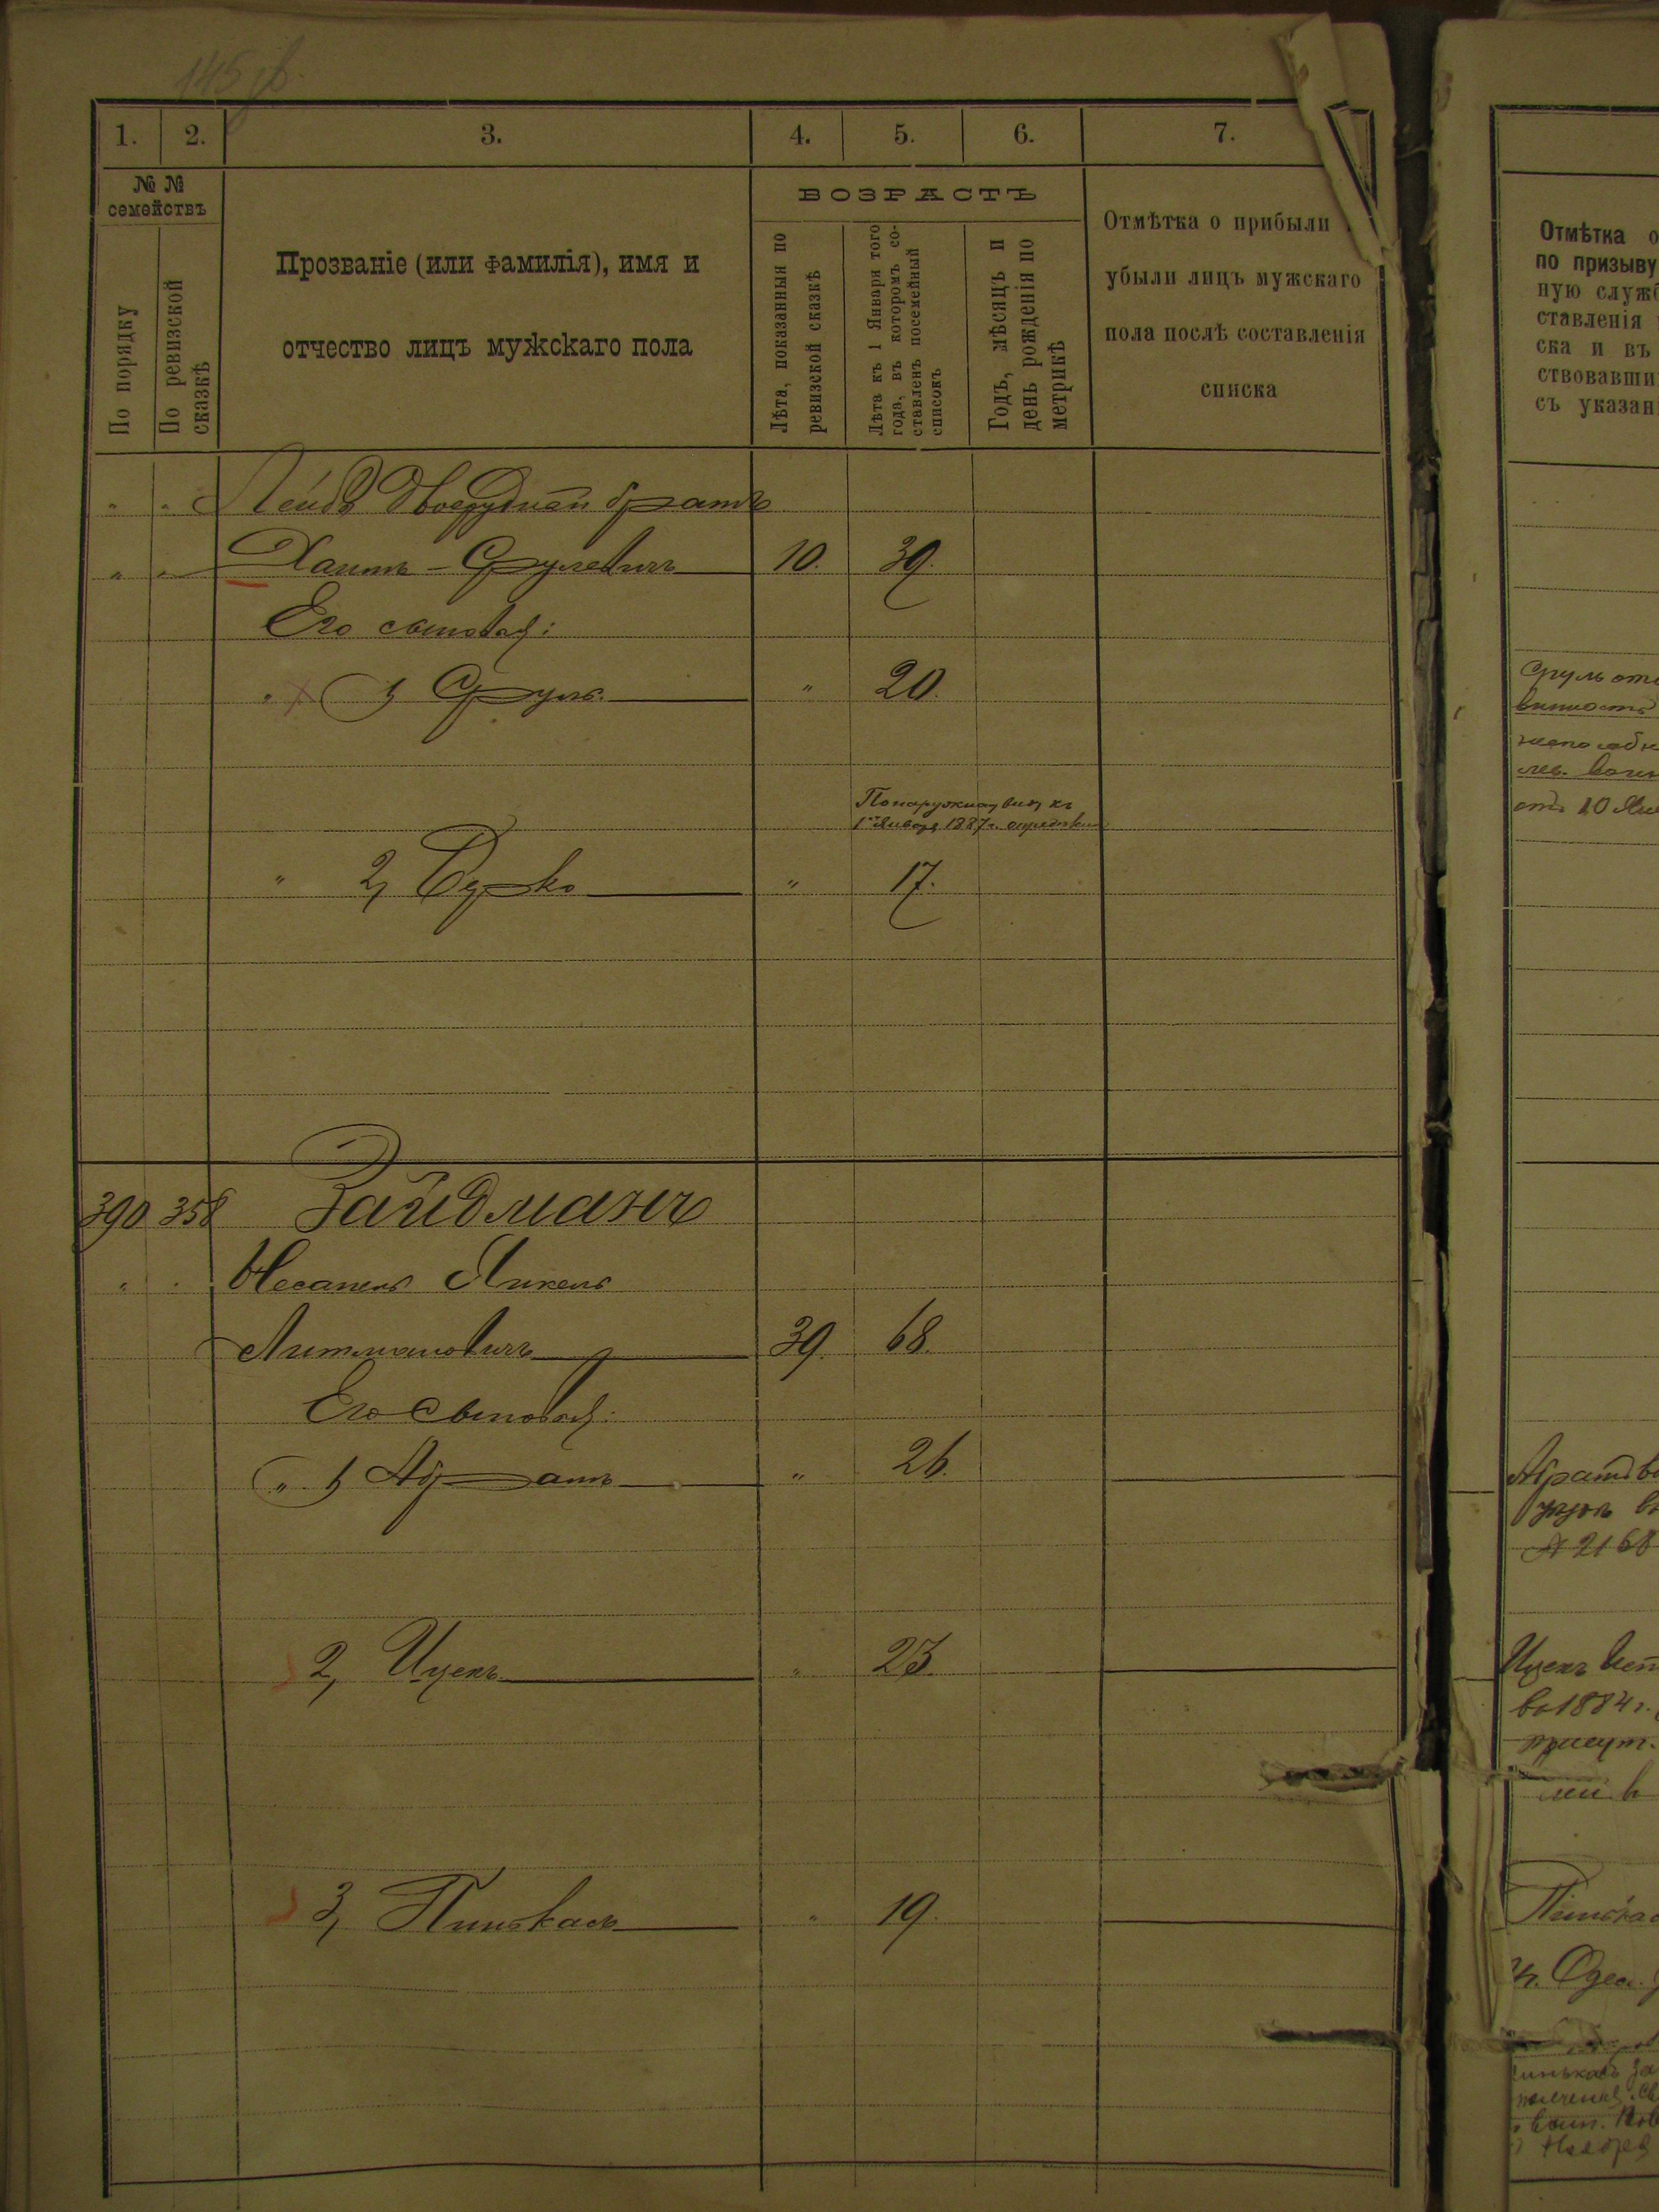 145 об.
1. 2. 3. 4. 5. 6. 7.
№ №
семействъ
По порядку
По ревизской
сказкѣ
Прозваніе (или фамилія), имя и
отчество лицъ мужскаго пола
ВОЗРАСТЪ
Лѣта, показанныя по
ревизской сказкѣ
Лѣта къ 1 Января того
года, въ которомъ со-
ставленъ посемейный
списокъ
Годъ, мѣсяцъ и
день рожденія по
метрикѣ
Отмѣтка о прибыли
убыли лицъ мужскаго
пола послѣ составленія
списка
Лейба двоюрудный братъ
Хаимъ-Срулевичъ 10. 39.
Его сыновья:
" 1, Сруль. " 20.
По наружному виду къ
1 Января 1887 г. опредѣлено
" 2, Берко " 17.
390 358 Зайдманъ
Янкель
Литмановичъ 39. 68.
Его сыновья:
" 1, Абрамъ " 26.
2, Ицекъ " 23
3, Пиньхасъ " 19.
Отмѣтка о
по призыву
ную служб
ставленія
ска и въ
ствовавши
съ указан
Сруль
отъ 10 Янв
Абрамъ
№ 2168
Ицекъ
въ 1884 г.
присут.
Пиньхас